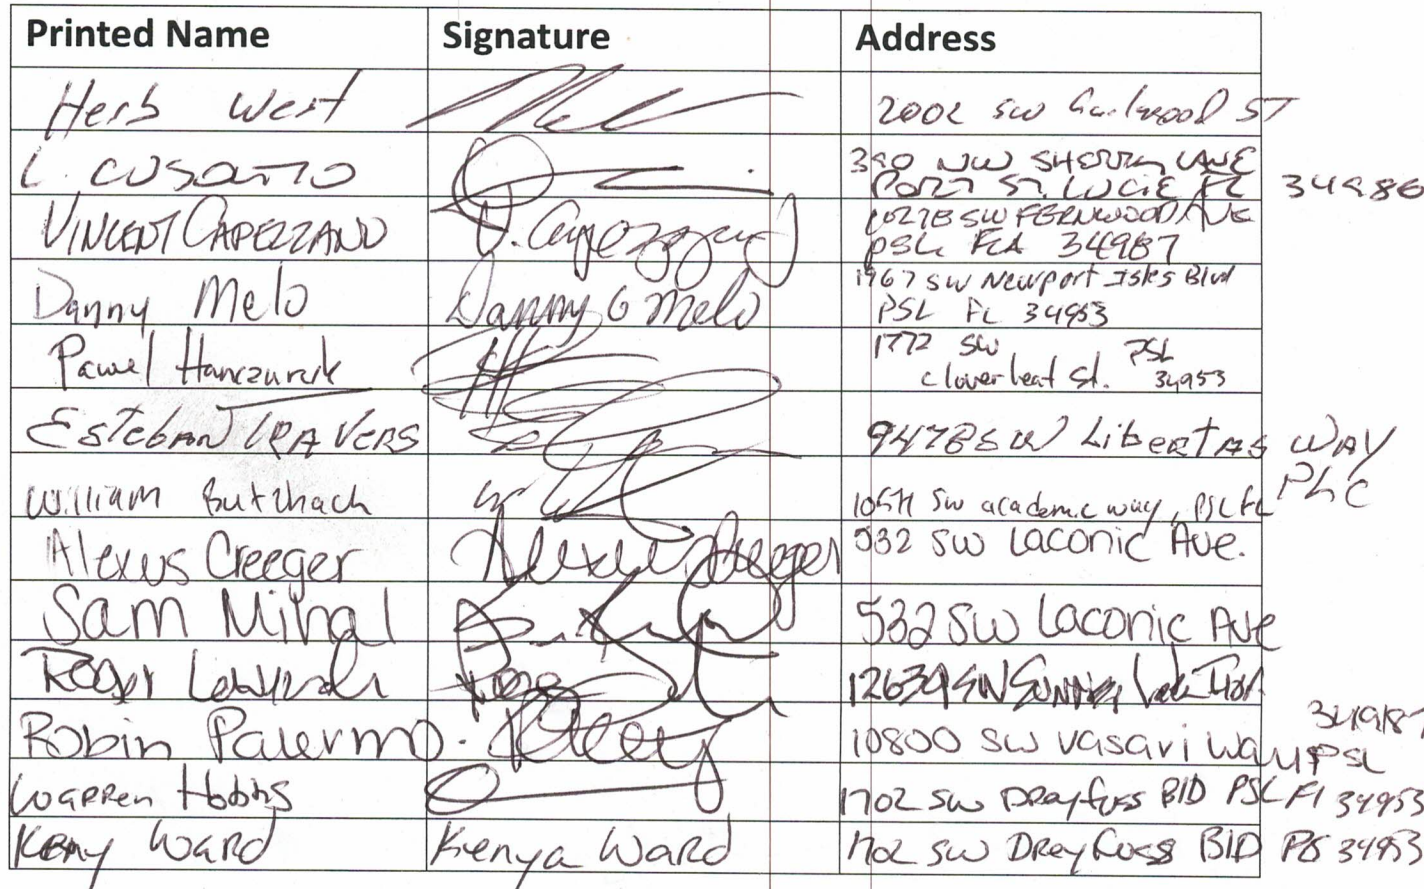 Printed Name Signature Address
Herb West 2002 SW ST
L. CUSATTO 390 NW SHERRY LANE
PORT ST. LUCIE FL 34986
VINCENT CAPEZZANO V. Capezzano SW FERNWOOD AVE
PSL FLA 34987
Danny Melo Danny G Melo 1967 SW Newport Isles Blvd
PSL FL 34953
Pawel 1772 SW PSL
cloverleaf St. 34953
Esteban TRAVERS 9478 SW LibertAS WAY
William Butzbach SW academic way, PSL FL
Alexus Creeger Alexus Creeger 532 SW Laconic Ave.
Sam Mihal 532 SW Laconic Ave
Roger 12639 SW
34987
Robin Palermo. 10800 SW Vasari Way PSL
Warren Hobbs 1702 SW Dreyfuss BlD PSL Fl 34953
Keny Ward Kenya Ward 1702 SW Dreyfuss BlD PS 34953